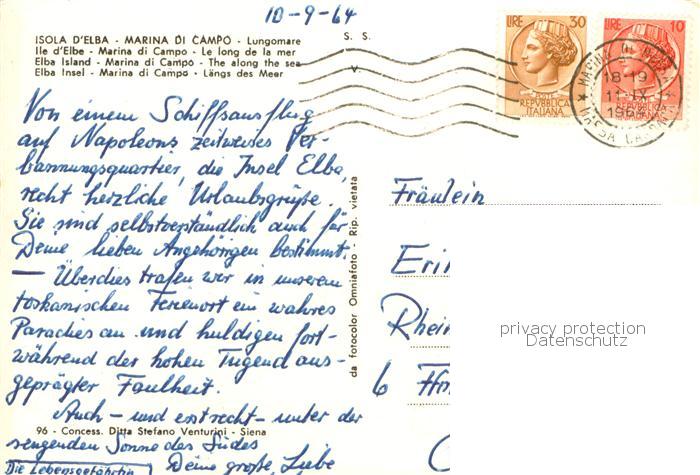 10-9-64
ISOLA D'ELBA - MARINA DI CAMPO - Lungomare
Ile d'Elbe - Marina di Campo - Le long de la mer
Elba Island - Marina di Campo - The along the sea
Elba Insel - Marina di Campo - Längs des Meer
S. S.
v.
LIRE 30
REPVBBLICA
ITALIANA
LIRE 10
REPVBBLICA
ITALIANA
18-19
11-IX
1964
Von einem Schiffsausflug
auf Napoleons zeitweises Ver-
bannungsquartier, die Insel Elba,
recht herzliche Urlaubsgrüße.
Sie sind selbstverständlich auch für
Deine lieben Angehörigen bestimmt.
— Überdies trafen wir in unserem
toskanischen Ferienort ein wahres
Paradies an und huldigen fort-
während der hohen Tugend aus-
geprägter Faulheit.
Auch - und erst recht - unter der
96 - Concess. Ditta Stefano Venturini - Siena
sengenden Sonne des Südes
Die Lebensgefährtin Deine große, Liebe
da fotocolor Omniafoto - Rip. vietata
Fräulein
Eri
Rhein
6
privacy protection
Datenschutz